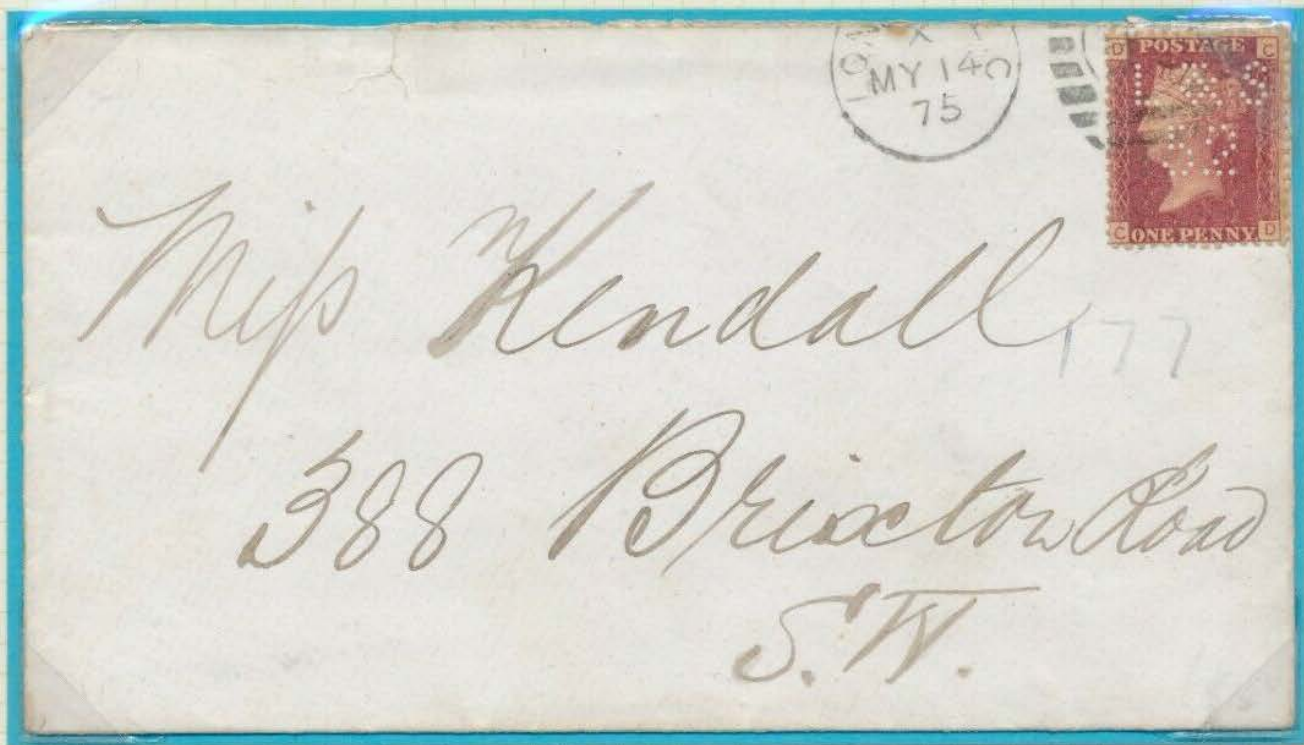 LON
X
MY 14
75
D POSTAGE C
C ONE PENNY D
Miss Kendall
177
388 Brixton Road
S.W.